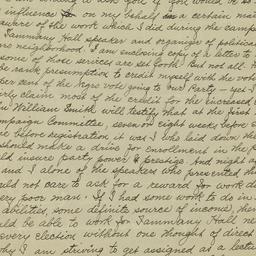 influence on my behalf in a certain ma
aware of the work which I did during the camp
Tammany Hall speaker and organizer of political
neighborhood. I am enclosing copy of a letter to
some of those services are set forth. But not all
the rank presumption to credit myself with the vote
per cent of the Negro vote going to our Party – yet I
claim most of the credit for the increased
William Smith will testify that at the first
mpaign Committee, seven or eight weeks before
before registration it was I who laid down th
should make a drive for enrollment in the
ld insure party power & prestige. And night a
and I alone of the speakers who presented th
ould not care to ask for a reward for work do
very poor man. If I had some work to do in
abilities, some definite source of income, ther
ld be able to work for Tammany Hall ne
every election without one thought of direct
why I am striving to get assigned at a lectu